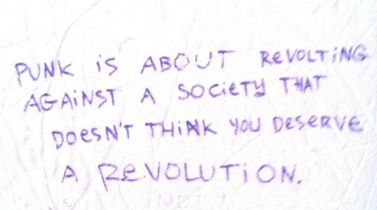 PUNK iS ABOUT ReVOLTiNG
AGAiNST A SOCieTY THAT
DOeSN'T THiNK YOU DeSeRVe
A ReVOLUTiON.